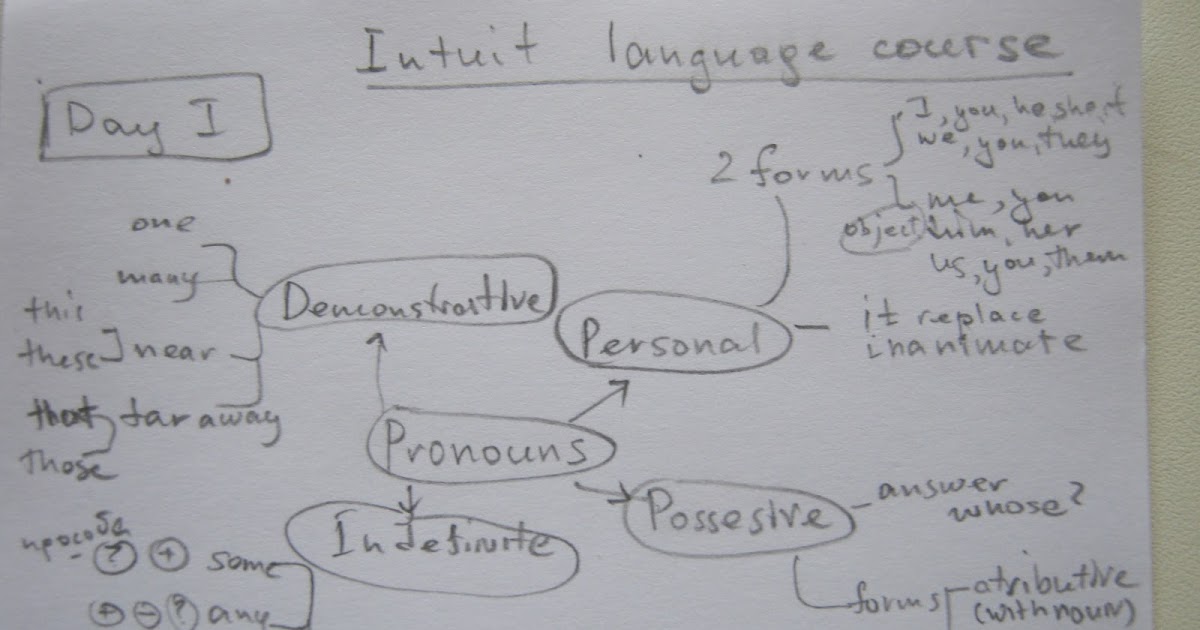 Intuit language course
Day I
I, you, he, she, it
we, you, they
2 forms
me, you
object him, her
us, you, them
one
many
Demonstrative
this
these ] near
that far away
those
Personal
it replace
inanimate
Pronouns
Possesive
answer
whose?
Indefinite
просьба
? + some
+ - ? any
forms
atributive
(with noun)